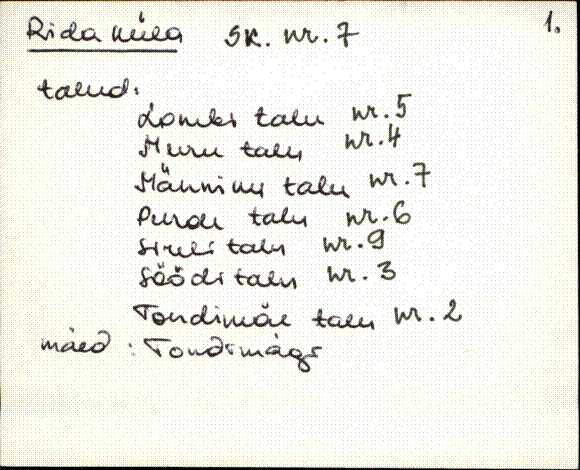 Rida küla sk. nr. 7 1.
talud:
Lombi talu nr. 5
Muru talu nr. 4
Männiku talu nr. 7
Purde talu nr. 6
Sireli talu nr. 9
Söödi talu nr. 3
Tondimäe talu nr. 2
mäed : Tondimägi